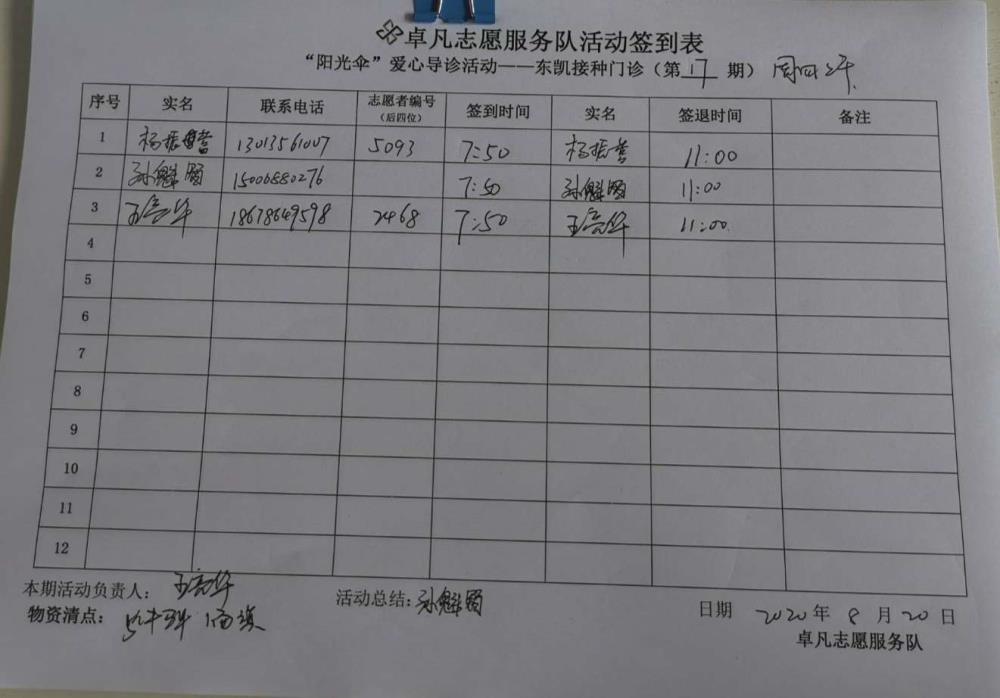 卓凡志愿服务队活动签到表
“阳光伞”爱心导诊活动——东凯接种门诊（第17期）周四上午
序号 实名 联系电话 志愿者编号（后四位） 签到时间 实名 签退时间 备注
1 杨振 13013561007 5093 7:50 杨振 11:00
2 孙魁 15006880276 7:50 孙魁 11:00
3 王亮华 18678649598 2468 7:50 王亮华 11:00
4
5
6
7
8
9
10
11
12
本期活动负责人：王亮华 活动总结：孙魁 日期 2020年8月20日
物资清点：
卓凡志愿服务队